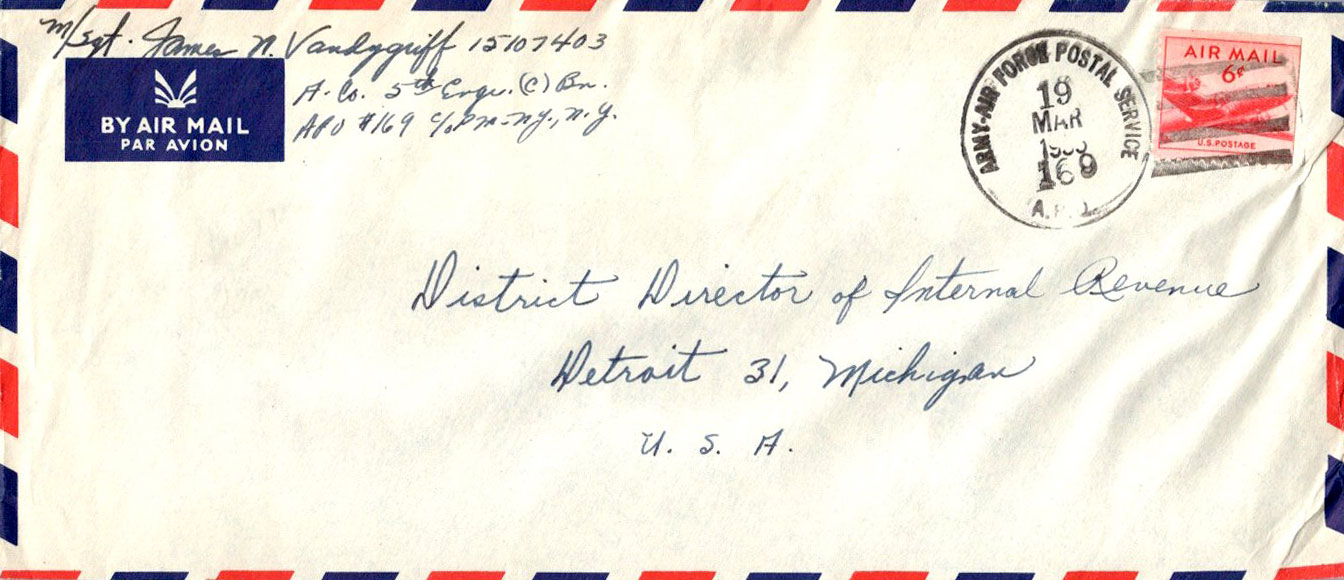 M/Sgt. James N. Vandygriff 15107403
A. Co. 5th Engr. (C) Bn.
APO #169 c/o Pm - n.y., n.y.
BY AIR MAIL
PAR AVION
ARMY-AIR FORCE POSTAL SERVICE
19
MAR
169
A.P.O.
AIR MAIL
6¢
U.S. POSTAGE
District Director of Internal Revenue
Detroit 31, Michigan
U. S. A.